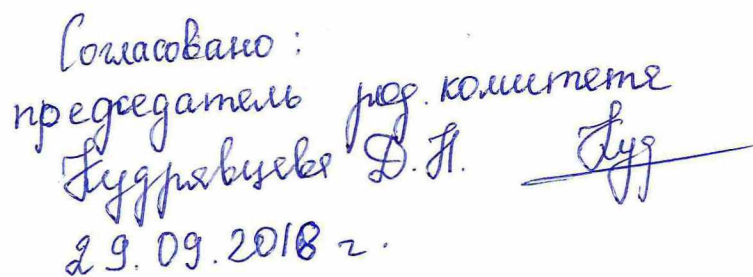 Согласовано:
председатель род. комитета
Кудрявцева Д.Н. Куд
29.09.2018 г.